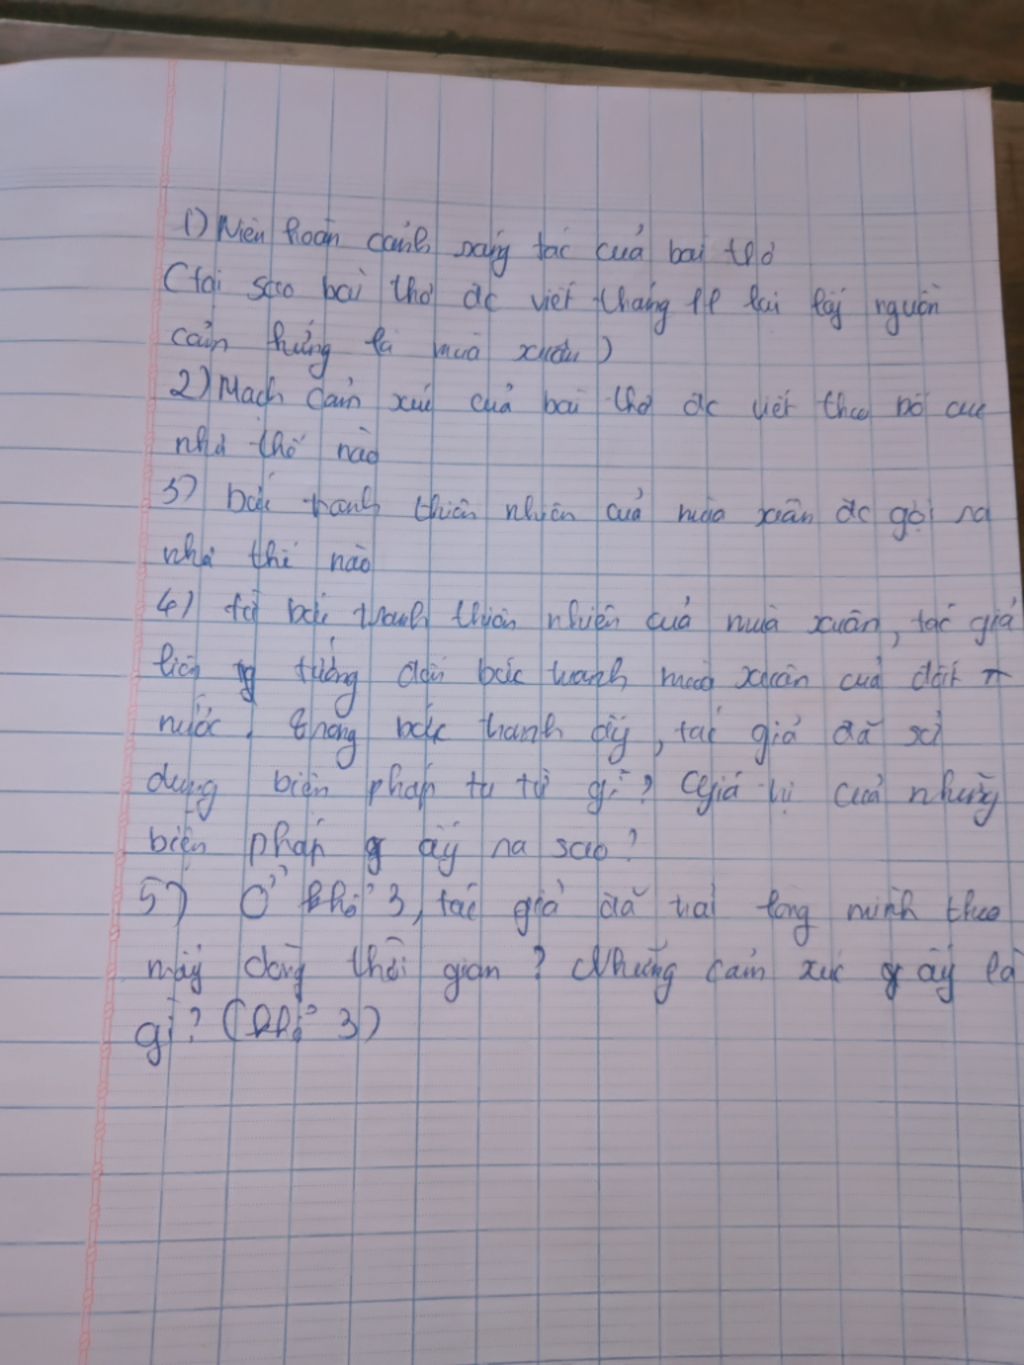 1) Niên hoàn cảnh sáng tác của bài thơ
(tại sao bài thơ đc viết tháng 11 lại lấy nguồn
cảm hứng là mùa xuân)
2) Mạch cảm xúc của bài thơ đc viết theo bố cục
như thế nào
3) bức tranh thiên nhiên của mùa xuân đc gợi ra
như thế nào
4) từ bức tranh thiên nhiên của mùa xuân, tác giả
liên tưởng đến bức tranh mùa xuân của đất
nước. trong bức tranh ấy, tác giả đã sử
dụng biện pháp tu từ gì? Giá trị của những
biện pháp ấy ra sao?
5) Ở khổ 3, tác giả đã trải lòng mình theo
mấy dòng thời gian? Những cảm xúc ấy là
gì? (khổ 3)